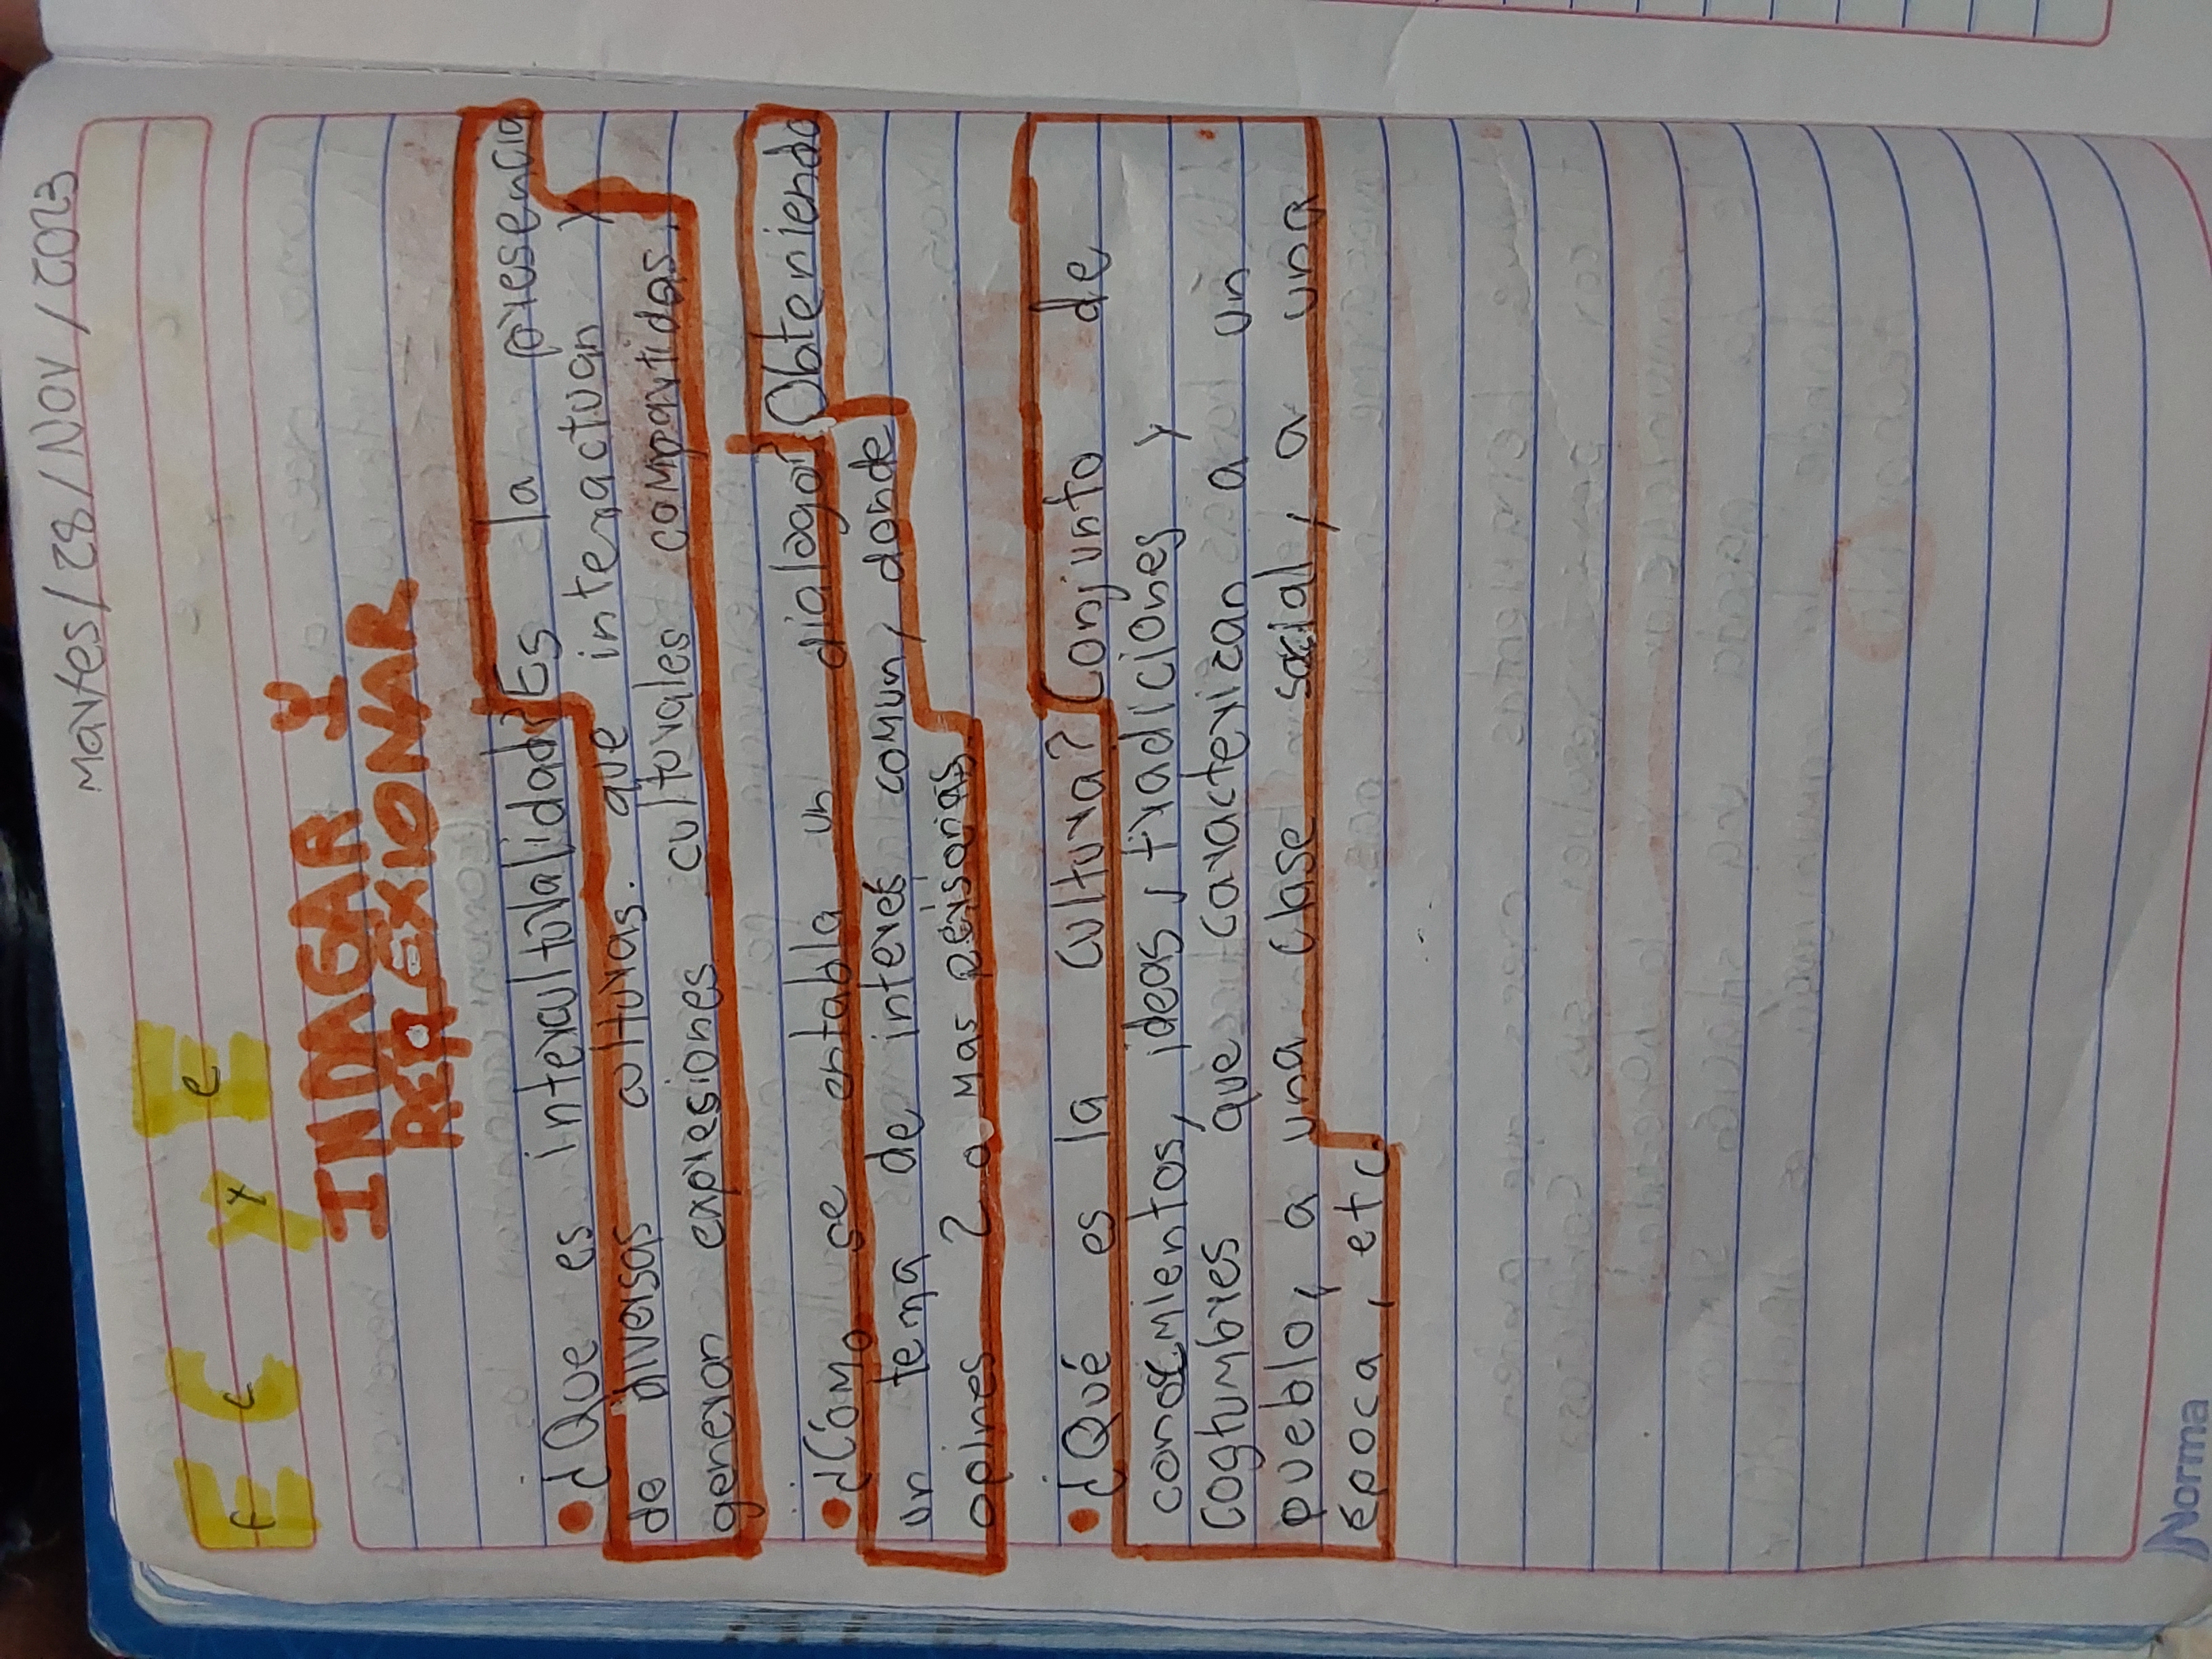 Martes/28/Nov/2023
F C y E
f c y e
INDAGAR Y
REFLEXIONAR
• ¿Que es interculturalidad? Es la presencia
de diversas culturas. que interactuan y
generan expresiones culturales compartidas.
• ¿Cómo se entabla un dialogo? Obteniendo
un tema de interés comun, donde
opines 2 o mas personas.
• ¿Qué es la cultura? Conjunto de
conocimientos, ideas, tradiciones y
costumbres que caracterizan a un
pueblo, a una clase social, a una
época, etc
Norma